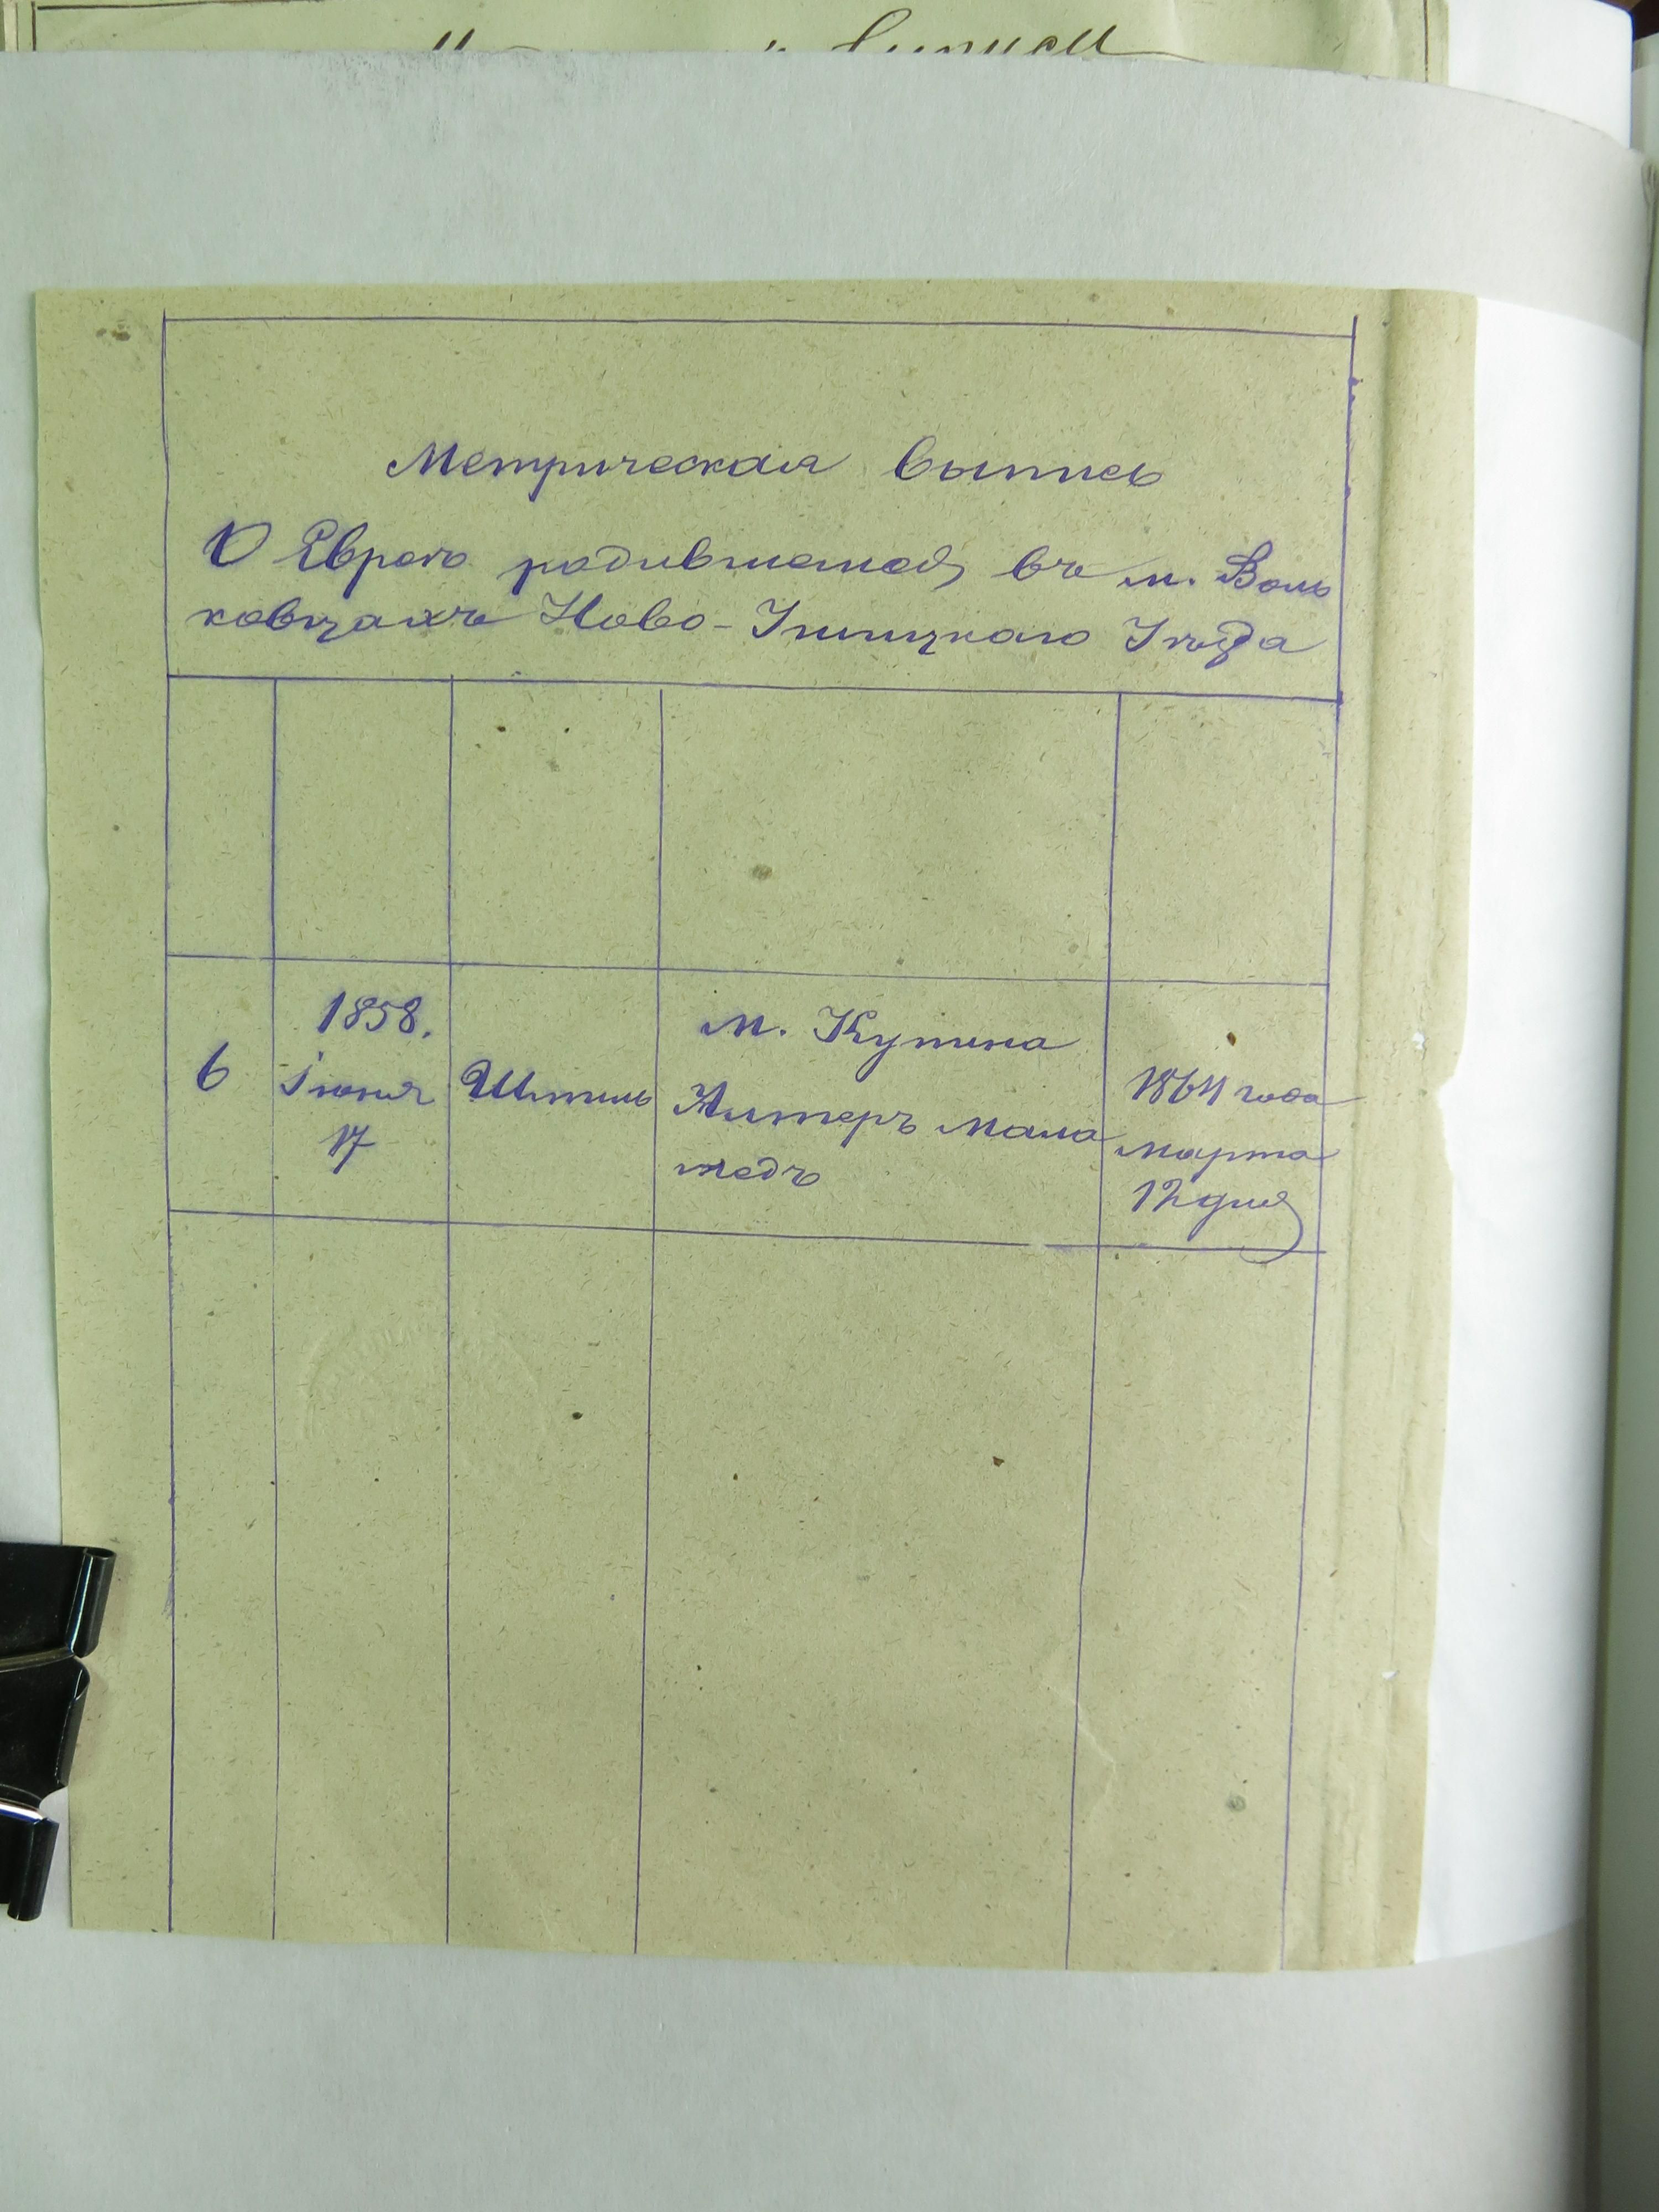 Метрическая выпись
О Еврее родившемся въ м. Воль
ковцахъ Ново-Ушицкаго Уѣзда
6
1858.
Іюня
17
Штиль
м. Купина
Альтеръ Мала
медъ
1864 года
марта
12 дня